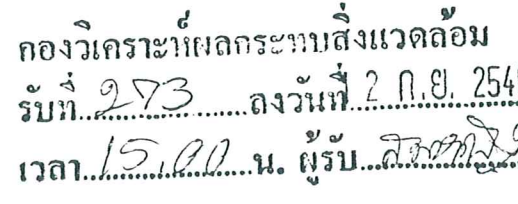 กองวิเคราะห์ผลกระทบสิ่งแวดล้อม
รับที่ 273 ลงวันที่ 2 ก.ย. 254
เวลา 15.00 น. ผู้รับ